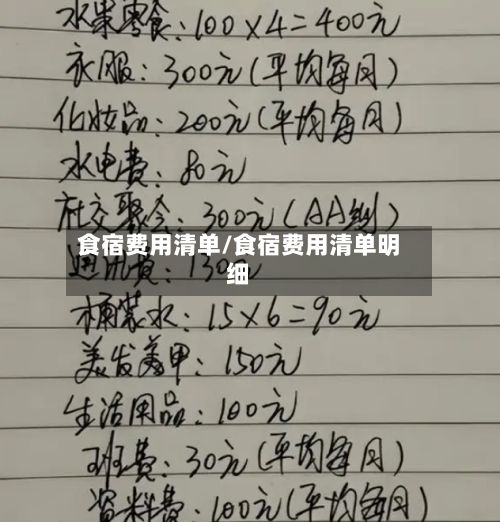 水果零食：100×4=400元
衣服：300元（平均每月）
化妆品：200元（平均每月）
水电费：80元
社交聚会：300元（AA制）
食宿费用清单/食宿费用清单明
细
通讯费：130元
桶装水：15×6=90元
美发美甲：150元
生活用品：100元
班费：30元（平均每月）
资料费：100元（平均每月）